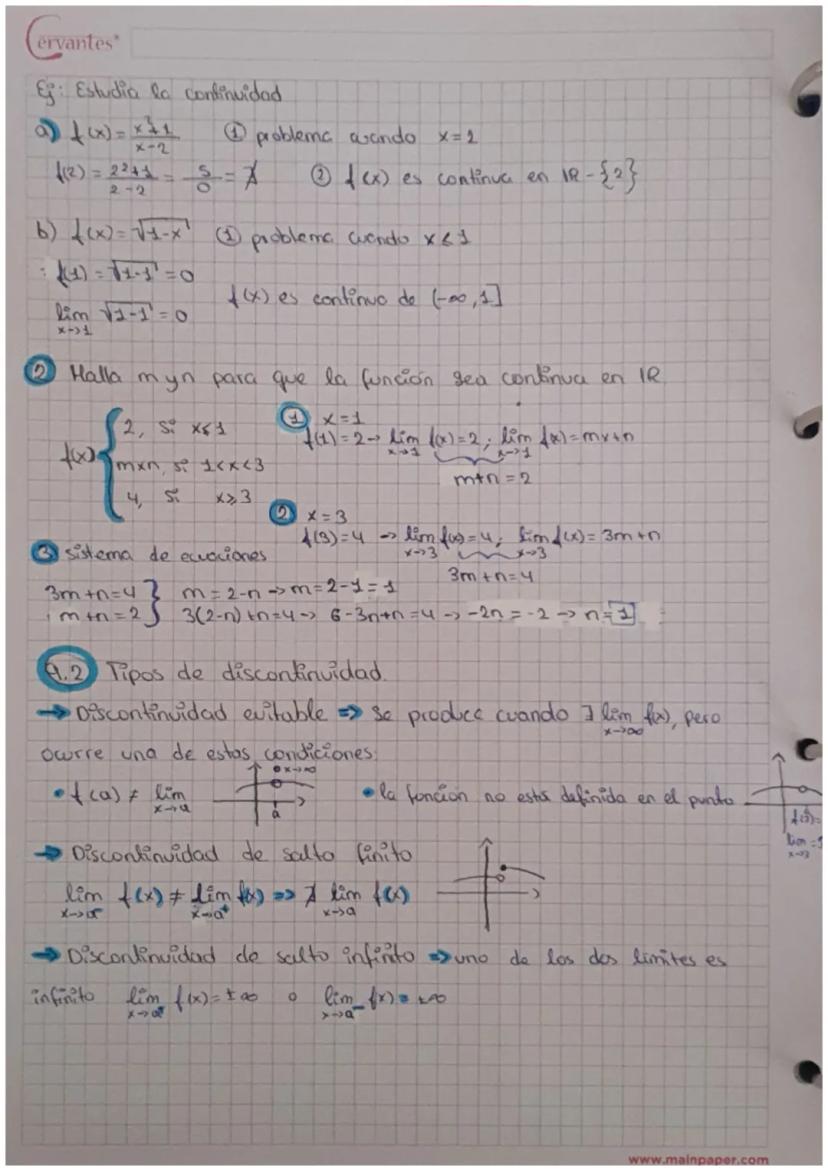 Cervantes
Ej: Estudia la continuidad
a) f(x) = x²+1 / x-2 ① problema cuando x=2
f(2) = 2²+1 / 2-2 = 5/0 = ∄ ② f(x) es continua en IR-{2}
b) f(x) = √1-x ① problema cuando x≤1
f(1) = √1-1 = 0
f(x) es continuo de (-∞,1]
lim x→1 √1-1 = 0
② Halla m y n para que la función sea continua en IR
f(x) { 2, si x≤1
mxn, si 1<x<3
4, si x≥3
① x=1
f(1)=2→ lim x→1 f(x)=2; lim x→1 f(x)=mx+n
m+n=2
② x=3
f(3)=4 → lim x→3 f(x)=4; lim x→3 f(x)=3m+n
3m+n=4
③ sistema de ecuaciones
3m+n=4 } m=2-n→m=2-1=1
m+n=2 } 3(2-n)+n=4→ 6-3n+n=4→ -2n=-2→ n=1
9.2 Tipos de discontinuidad.
→ Discontinuidad evitable ⇒ Se produce cuando ∃ lim x→∞ f(x), pero
ocurre una de estas condiciones:
• f(a) ≠ lim x→a
x→∞
a
• la función no está definida en el punto
f(3)=
lim x→3 =
→ Discontinuidad de salto finito
lim x→a⁻ f(x) ≠ lim x→a⁺ f(x) ⇒ ∄ lim x→a f(x)
→ Discontinuidad de salto infinito ⇒ uno de los dos limites es
infinito lim x→a⁺ f(x)=±∞ o lim x→a⁻ f(x)=±∞
www.mainpaper.com